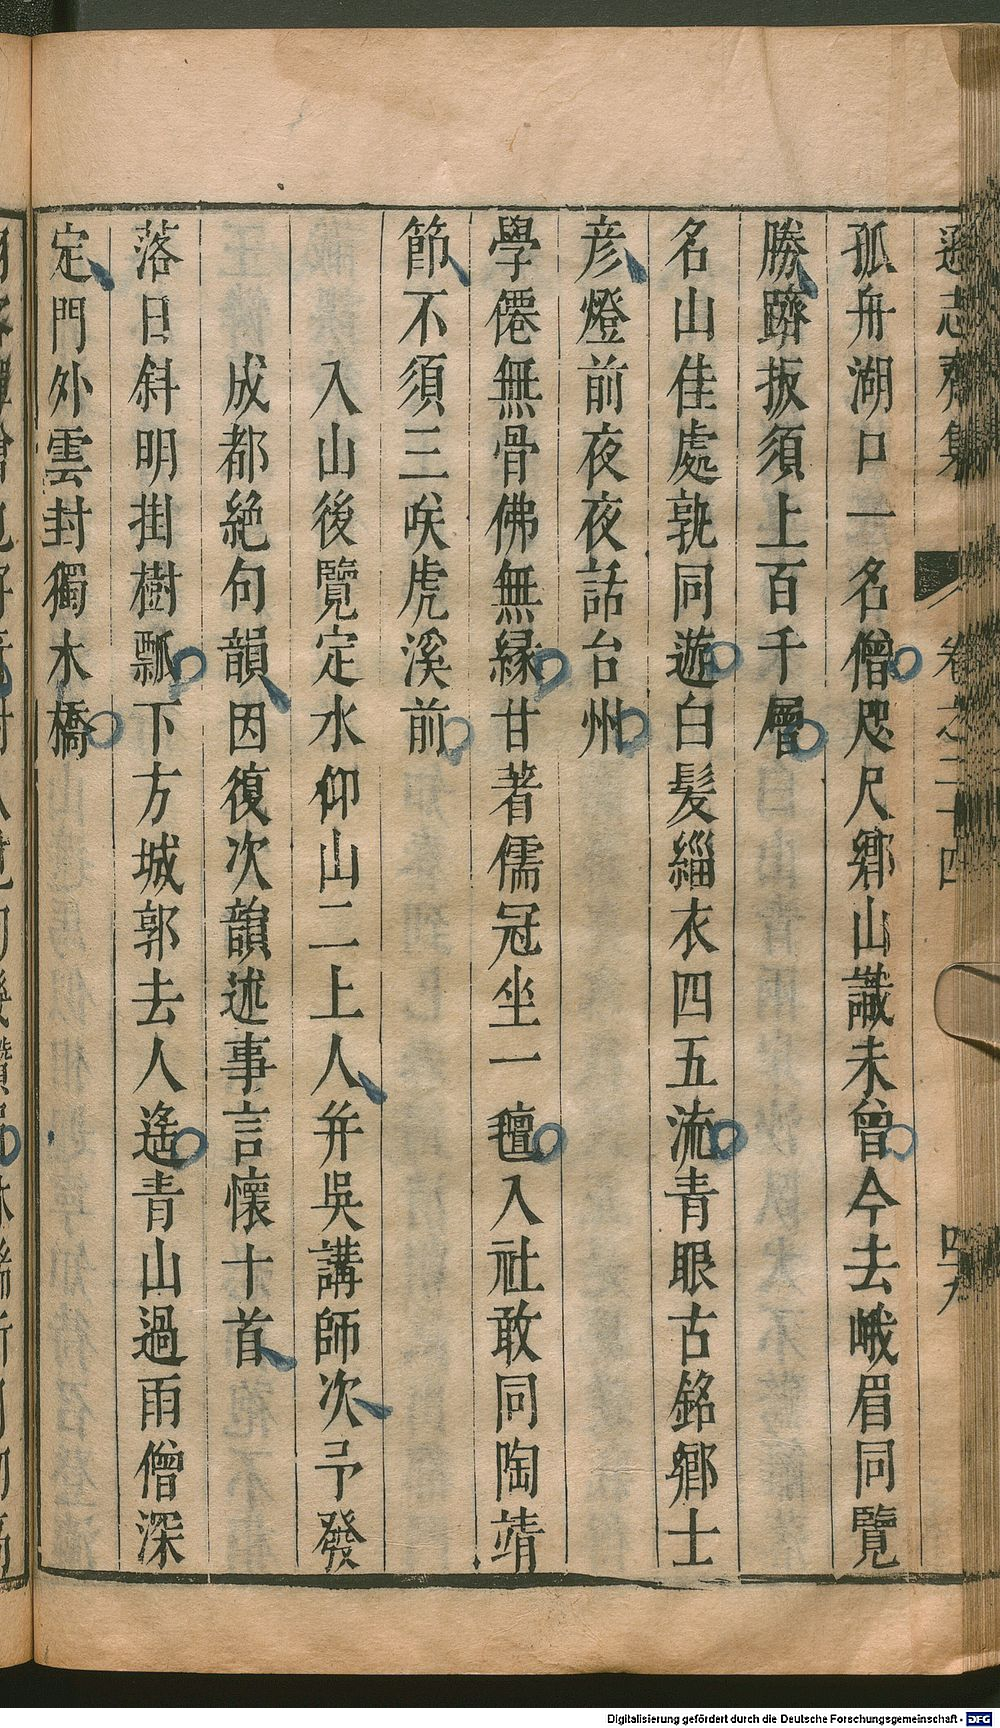 遜志齋集 卷之二十四 四十九
孤舟湖口一名僧咫尺鄉山識未曾今去峨眉同覽
勝躋扳須上百千層
名山佳處孰同遊白髮緇衣四五流青眼古銘鄉士
彦燈前夜夜話台州
學僊無骨佛無緣甘著儒冠坐一氊入社敢同陶靖
節不須三唉虎溪前
入山後覽定水仰山二上人并吳講師次予發
成都絶句韻因復次韻述事言懷十首
落日斜明掛樹瓢下方城郭去人遙青山過雨僧深
定門外雲封獨木橋
Digitalisierung gefördert durch die Deutsche Forschungsgemeinschaft - DFG